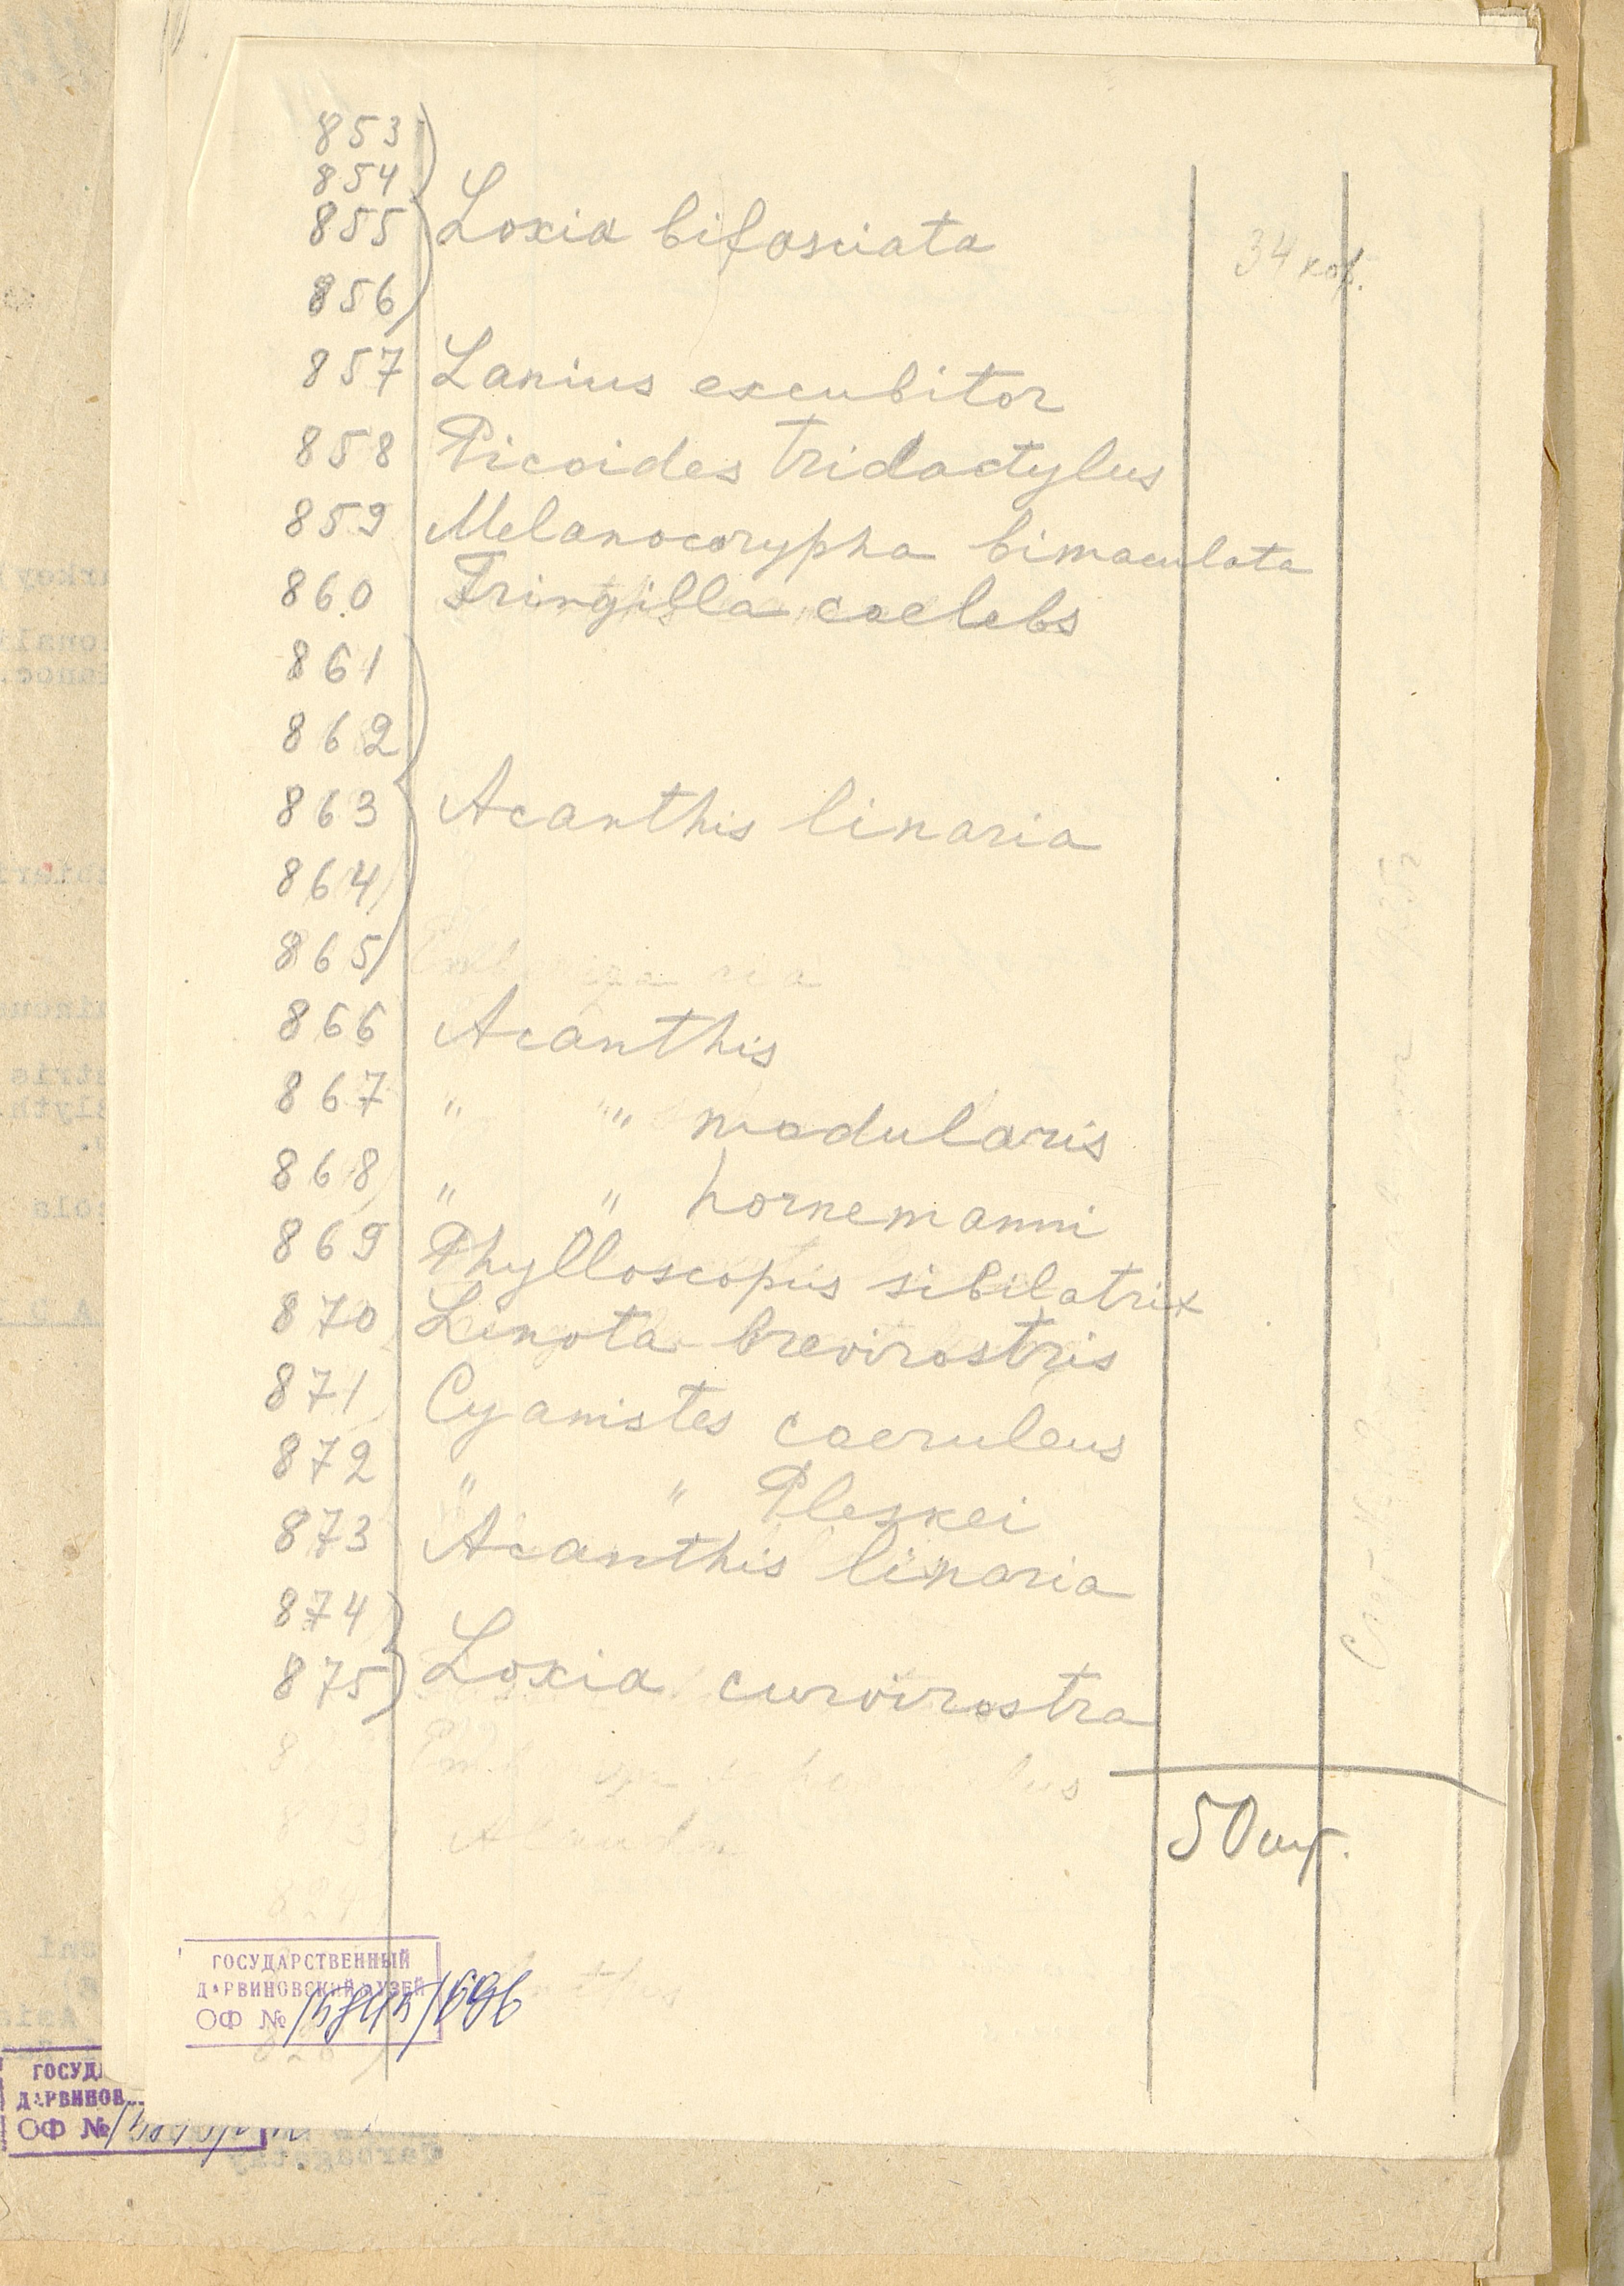 853
854
855 Loxia bifasciata
34 коп.
856
857 Lanius excubitor
858 Picoides tridactylus
859 Melanocorypha bimaculata
860 Fringilla coelebs
861
862
863 Acanthis linaria
864
865
866 Acanthis
867 " " modularis
868 " " hornemanni
869 Phylloscopus sibilatrix
870 Linota brevirostris
871 Cyanistes caeruleus
872 " " Pleskei
873 Acanthis linaria
874
875 Loxia curvirostra
50 шт.
ГОСУДАРСТВЕННЫЙ
ДАРВИНОВСКИЙ МУЗЕЙ
ОФ №
ГОСУД
ДАРВИНОВ
ОФ №